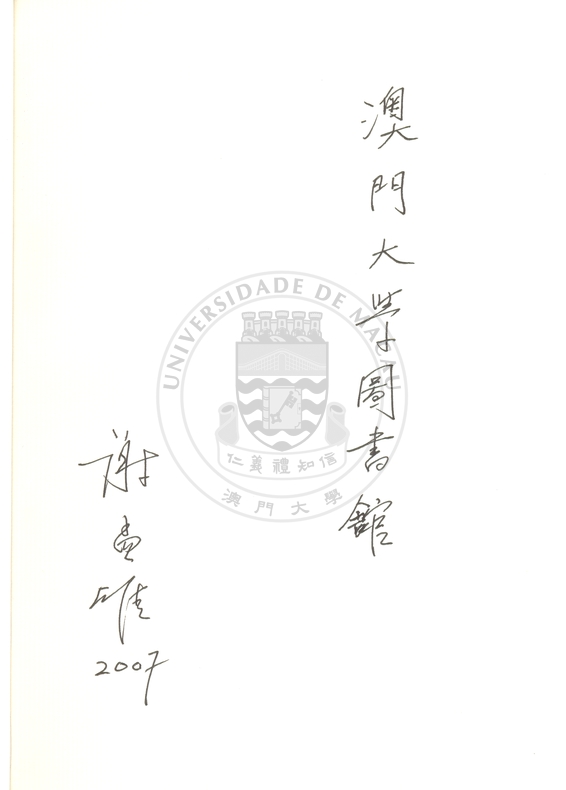 澳門大學圖書館
謝孟雄
2007
UNIVERSIDADE DE MACAU
仁義禮知信
澳門大學